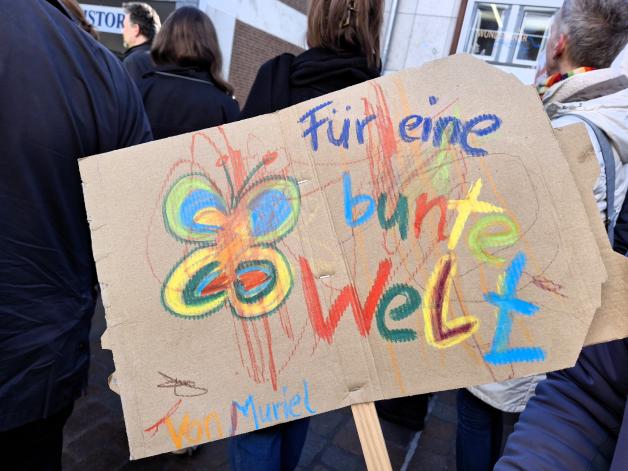 ISTOR
Für eine
bunte
Welt
Von Muriel